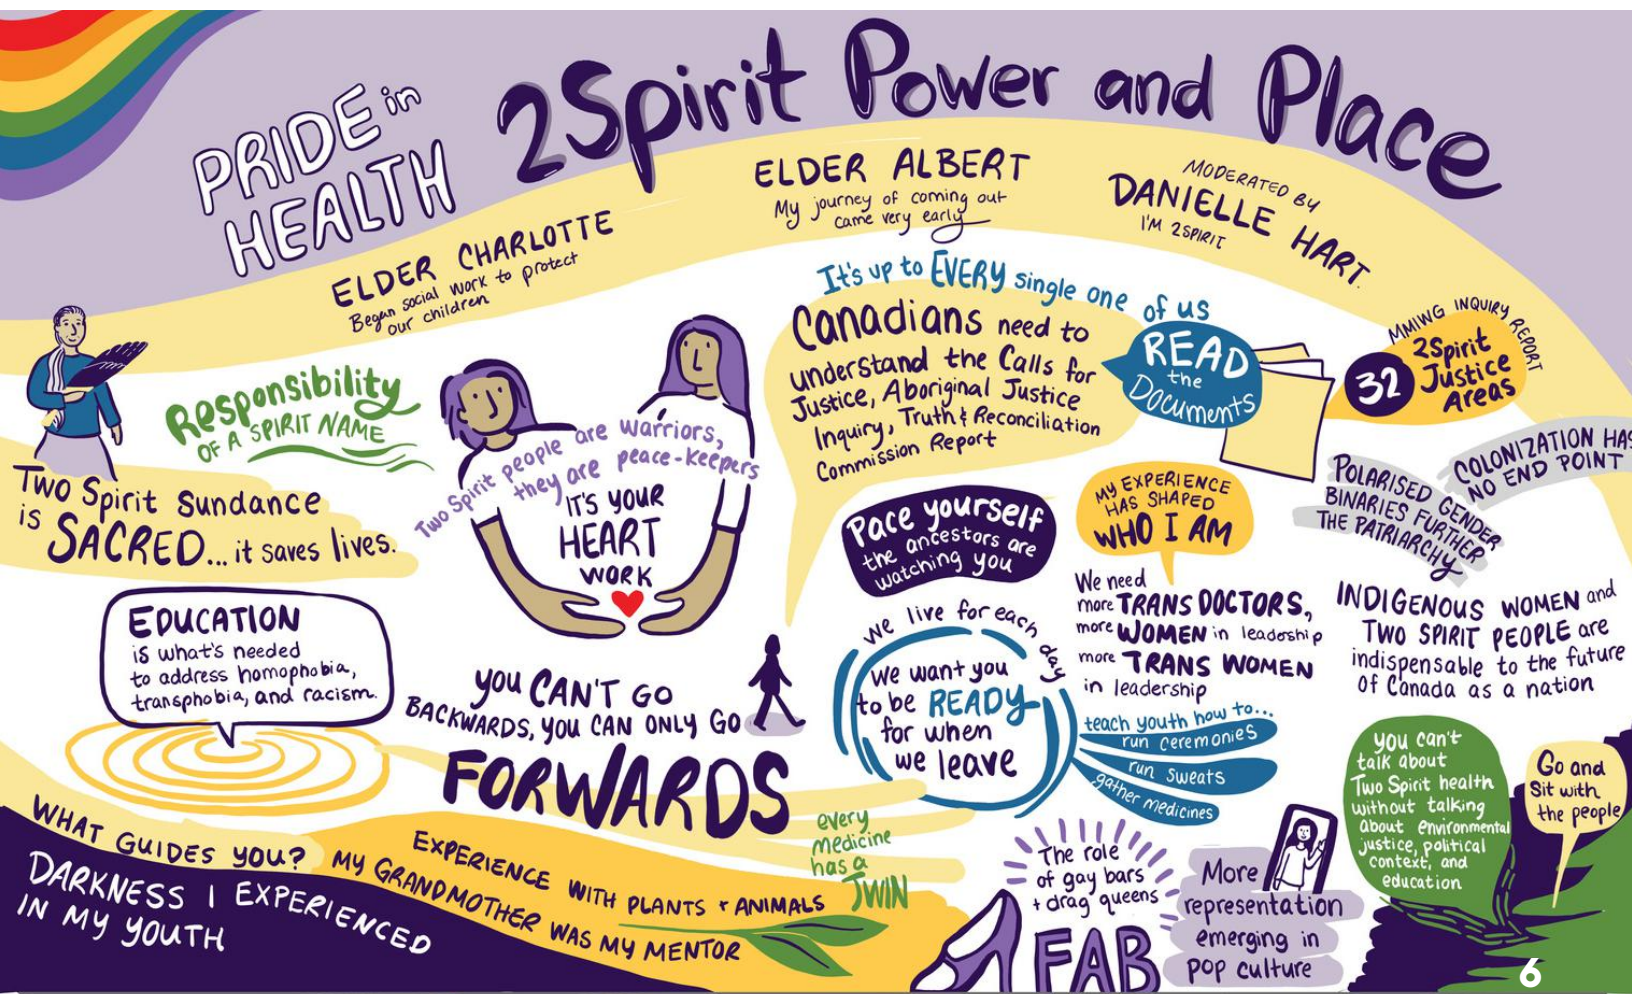 PRIDE in
HEALTH
2Spirit Power and Place
ELDER CHARLOTTE
Began social work to protect
our children
ELDER ALBERT
My journey of coming out
came very early
MODERATED BY
DANIELLE HART
I'M 2SPIRIT
Responsibility
OF A SPIRIT NAME
Two Spirit Sundance
is SACRED... it saves lives.
Two Spirit people are warriors,
they are peace-keepers
IT'S YOUR
HEART
WORK
It's up to EVERY single one of us
Canadians need to
understand the Calls for
Justice, Aboriginal Justice
Inquiry, Truth & Reconciliation
Commission Report
READ
the
Documents
MMIWG INQUIRY REPORT
32
2Spirit
Justice
Areas
COLONIZATION HAS
NO END POINT
POLARISED GENDER
BINARIES FURTHER
THE PATRIARCHY
Pace yourself
the ancestors are
watching you
MY EXPERIENCE
HAS SHAPED
WHO I AM
We need
more TRANS DOCTORS,
more WOMEN in leadership
more TRANS WOMEN
in leadership
INDIGENOUS WOMEN and
TWO SPIRIT PEOPLE are
indispensable to the future
of Canada as a nation
EDUCATION
is what's needed
to address homophobia,
transphobia, and racism.
you CAN'T GO
BACKWARDS, you CAN ONLY GO
FORWARDS
we live for each day
we want you
to be READY
for when
we leave
teach youth how to...
run ceremonies
run sweats
gather medicines
you can't
talk about
Two Spirit health
without talking
about environmental
justice, political
context, and
education
Go and
Sit with
the people
WHAT GUIDES YOU?
DARKNESS I EXPERIENCED
IN MY YOUTH
EXPERIENCE WITH PLANTS + ANIMALS
MY GRANDMOTHER WAS MY MENTOR
every
medicine
has a
TWIN
The role
of gay bars
+ drag queens
FAB
More
representation
emerging in
pop culture
6